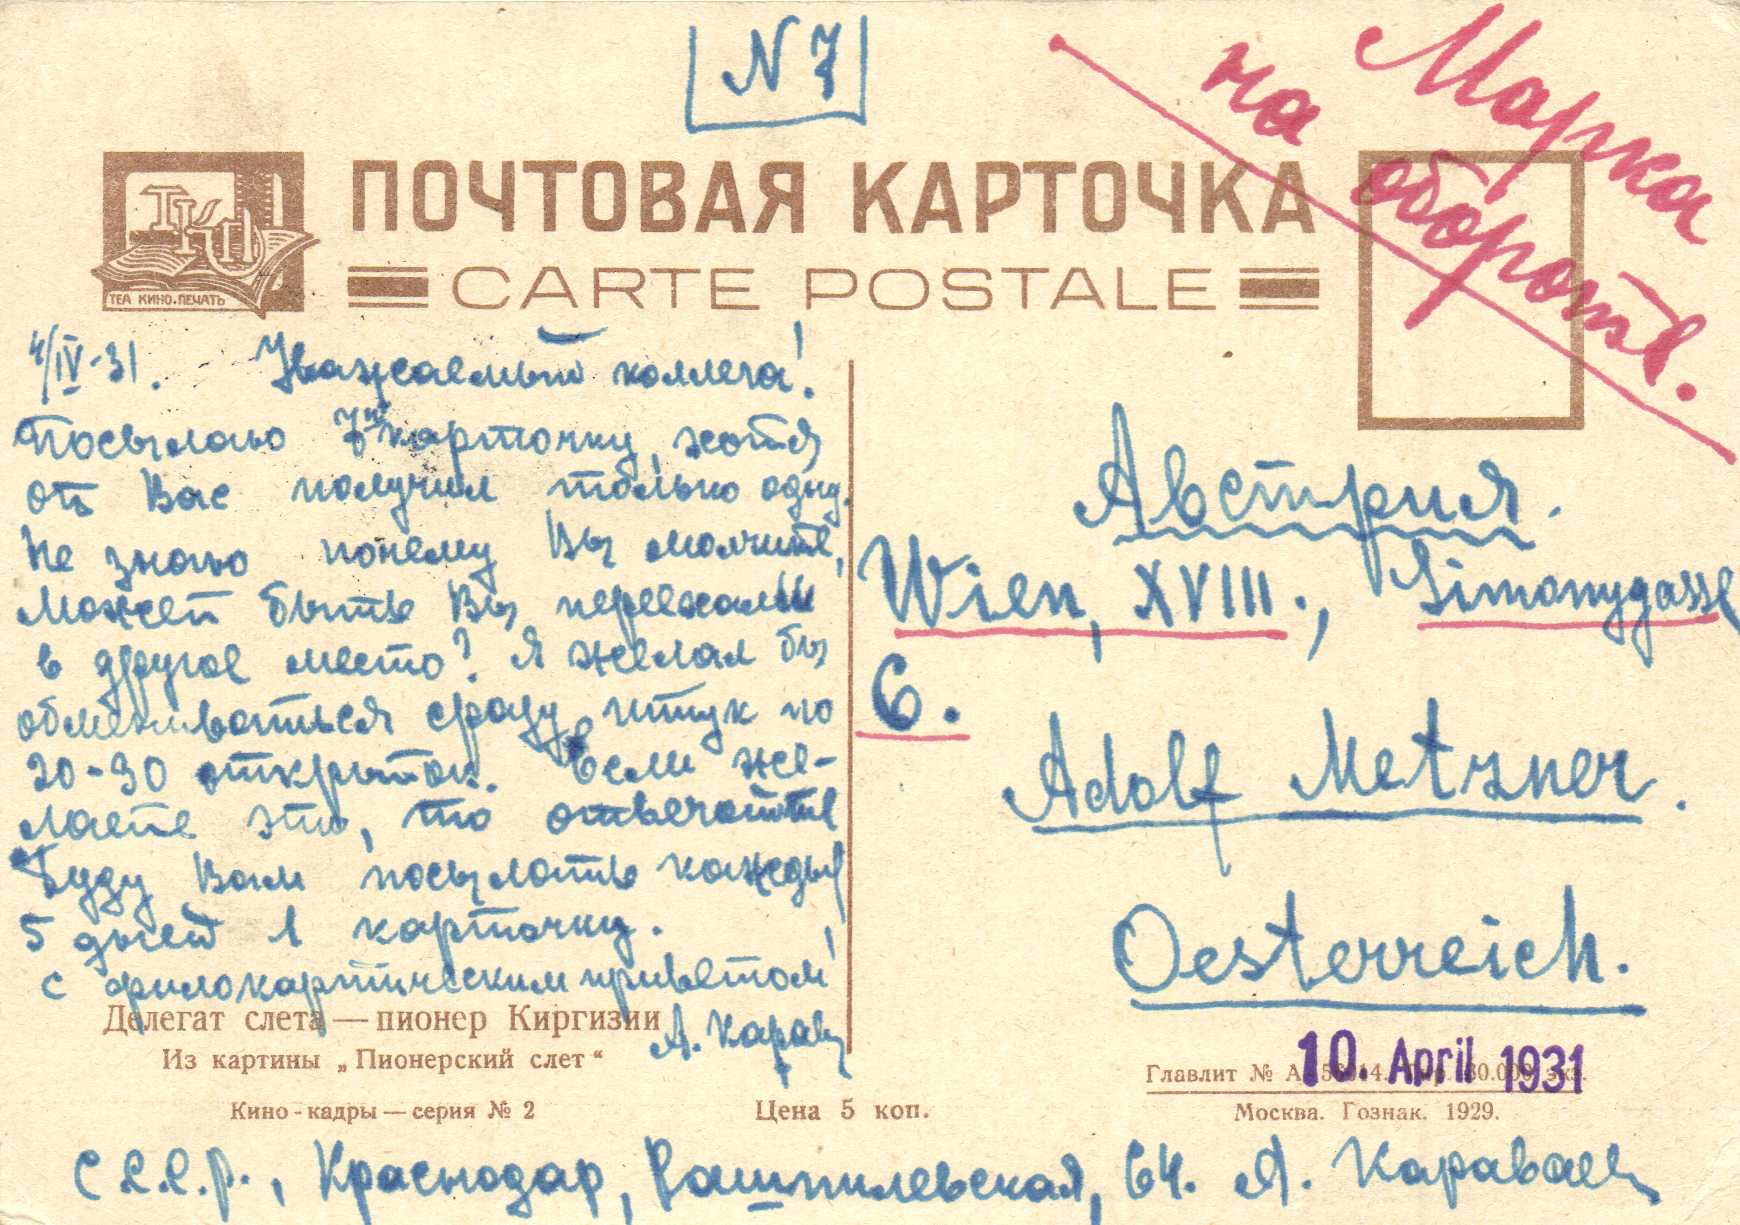 N 7
Марка
на обороте.
ПОЧТОВАЯ КАРТОЧКА
CARTE POSTALE
ТКП
ТЕА КИНО-ПЕЧАТЬ
4/IV-31. Уважаемый коллега!
Посылаю 7ую карточку, хотя
от Вас получил только одну.
Не знаю почему Вы молчите,
Может быть Вы переехали
в другое место? Я желал бы
обмениваться сразу штук по
20-30 открыток. Если же-
лаете это, то отвечайте
Буду Вам посылать каждые
5 дней 1 карточку.
С филокартическим приветом!
А. Караваец
Делегат слета — пионер Киргизии
Из картины „Пионерский слет“
Кино-кадры — серия № 2
Цена 5 коп.
Австрия.
Wien, XVIII., Simonygasse
6.
Adolf Metzner.
Oesterreich.
10. April 1931
Главлит № А
Москва. Гознак. 1929.
С.С.С.Р., Краснодар, Рашпилевская, 64. А. Караваец